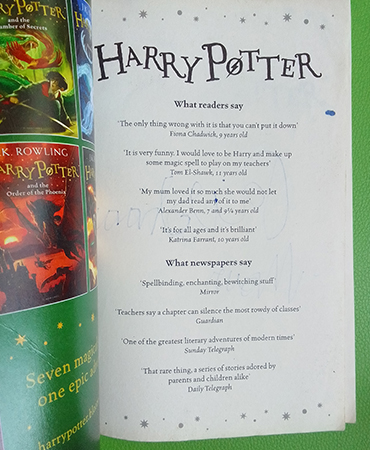 POTTER
and the
mber of Secrets
K. ROWLING
HARRY POTTER
and the
Order of the Phoenix
Seven magic
one epic a
harrypotter.bl
HARRY POTTER
What readers say
'The only thing wrong with it is that you can't put it down'
Fiona Chadwick, 9 years old
'It is very funny. I would love to be Harry and make up
some magic spell to play on my teachers'
Tom El-Shawk, 11 years old
'My mum loved it so much she would not let
my dad read any of it to me'
Alexander Benn, 7 and 9¼ years old
'It's for all ages and it's brilliant'
Katrina Farrant, 10 years old
What newspapers say
'Spellbinding, enchanting, bewitching stuff'
Mirror
'Teachers say a chapter can silence the most rowdy of classes'
Guardian
'One of the greatest literary adventures of modern times'
Sunday Telegraph
'That rare thing, a series of stories adored by
parents and children alike'
Daily Telegraph